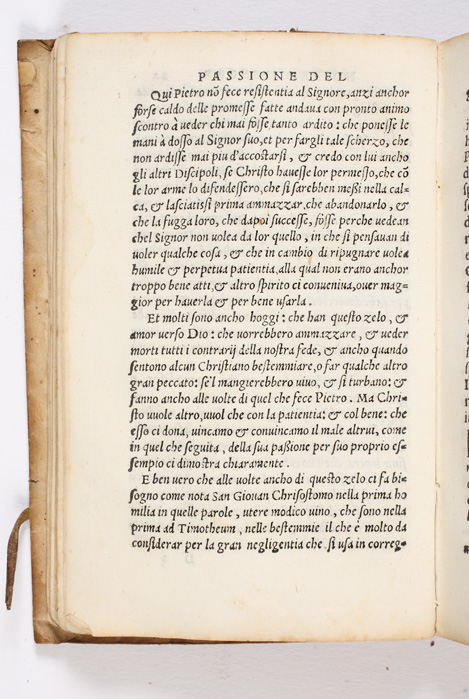 PASSIONE DEL
Qui Pietro nō fece resistentia al Signore, anzi anchor
forse caldo delle promesse fatte andaua con pronto animo
scontro à ueder chi mai fosse tanto ardito: che ponesse le
mani à dosso al Signor suo, et per fargli tale scherzo, che
non ardisse mai piu d'accostarsi, & credo con lui ancho
gli altri Discipoli, se Christo hauesse lor permesso, che cō
le lor arme lo difendessero, che si sarebben meßi nella cal-
ca, & lasciatisi prima ammazzar, che abandonarlo, &
che la fugga loro, che dapoi successe, fosse perche uedean
chel Signor non uolea da lor quello, in che si pensauan di
uoler qualche cosa, & che in cambio di ripugnare uolea
humile & perpetua patientia, alla qual non erano anchor
troppo bene atti, & altro spirito ci conueniua, ouer mag-
gior per hauerla & per bene usarla.
Et molti sono ancho hoggi: che han questo zelo, &
amor uerso Dio: che uorrebbero ammazzare, & ueder
morti tutti i contrarij della nostra fede, & ancho quando
sentono alcun Christiano bestemmiare, o far qualche altro
gran peccato: se'l mangierebbero uiuo, & si turbano: &
fanno ancho alle uolte di quel che fece Pietro. Ma Chri-
sto uuole altro, uuol che con la patientia: & col bene: che
esso ci dona, uincamo & conuincamo il male altrui, come
in quel che seguita, della sua paßione per suo proprio es-
sempio ci dimostra chiaramente.
E ben uero che alle uolte ancho di questo zelo ci fa bi-
sogno come nota San Giouan Chrisostomo nella prima ho
milia in quelle parole, utere modico uino, che sono nella
prima ad Timotheum, nelle bestemmie il che è molto da
considerar per la gran negligentia che si usa in correg-